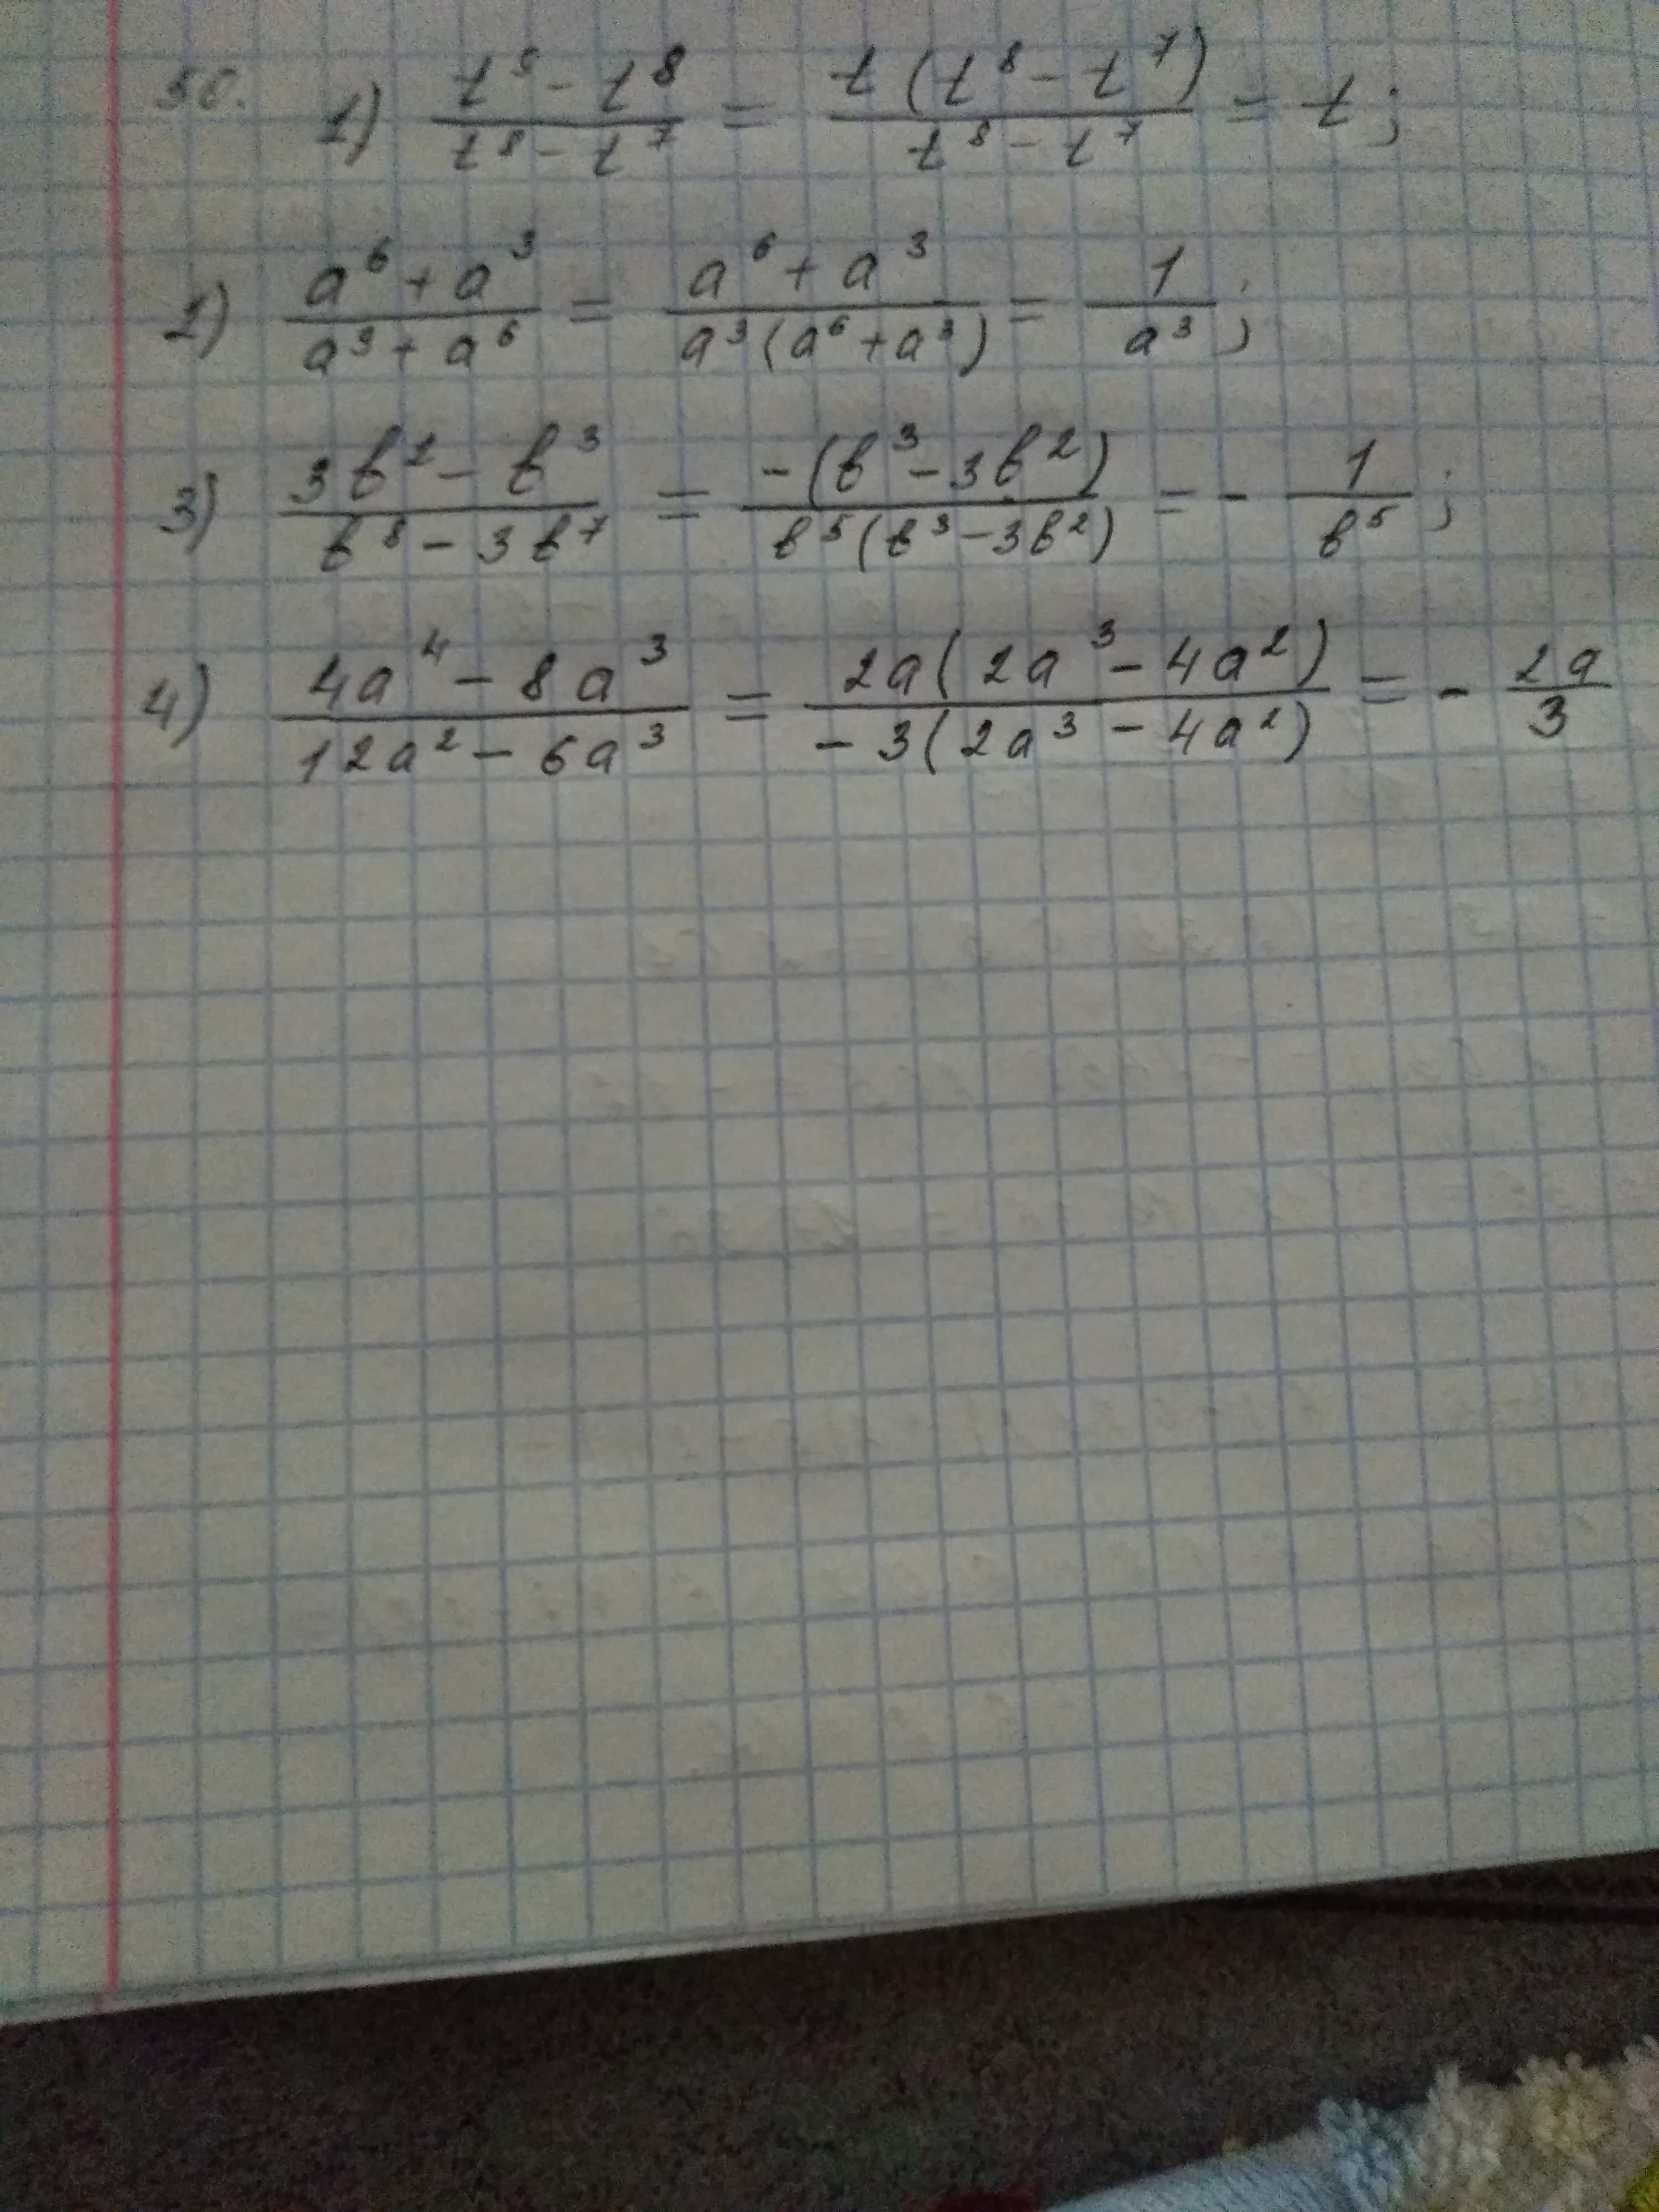 30. 1) (t⁹ - t⁸)/(t⁸ - t⁷) = t(t⁸ - t⁷)/(t⁸ - t⁷) = t;
2) (a⁶ + a³)/(a³ + a⁶) = (a⁶ + a³)/(a³(a⁶ + a³)) = 1/a³;
3) (3b² - b³)/(b⁸ - 3b⁷) = -(b³ - 3b²)/(b⁵(b³ - 3b²)) = - 1/b⁵;
4) (4a⁴ - 8a³)/(12a² - 6a³) = 2a(2a³ - 4a²)/(-3(2a³ - 4a²)) = - 2a/3